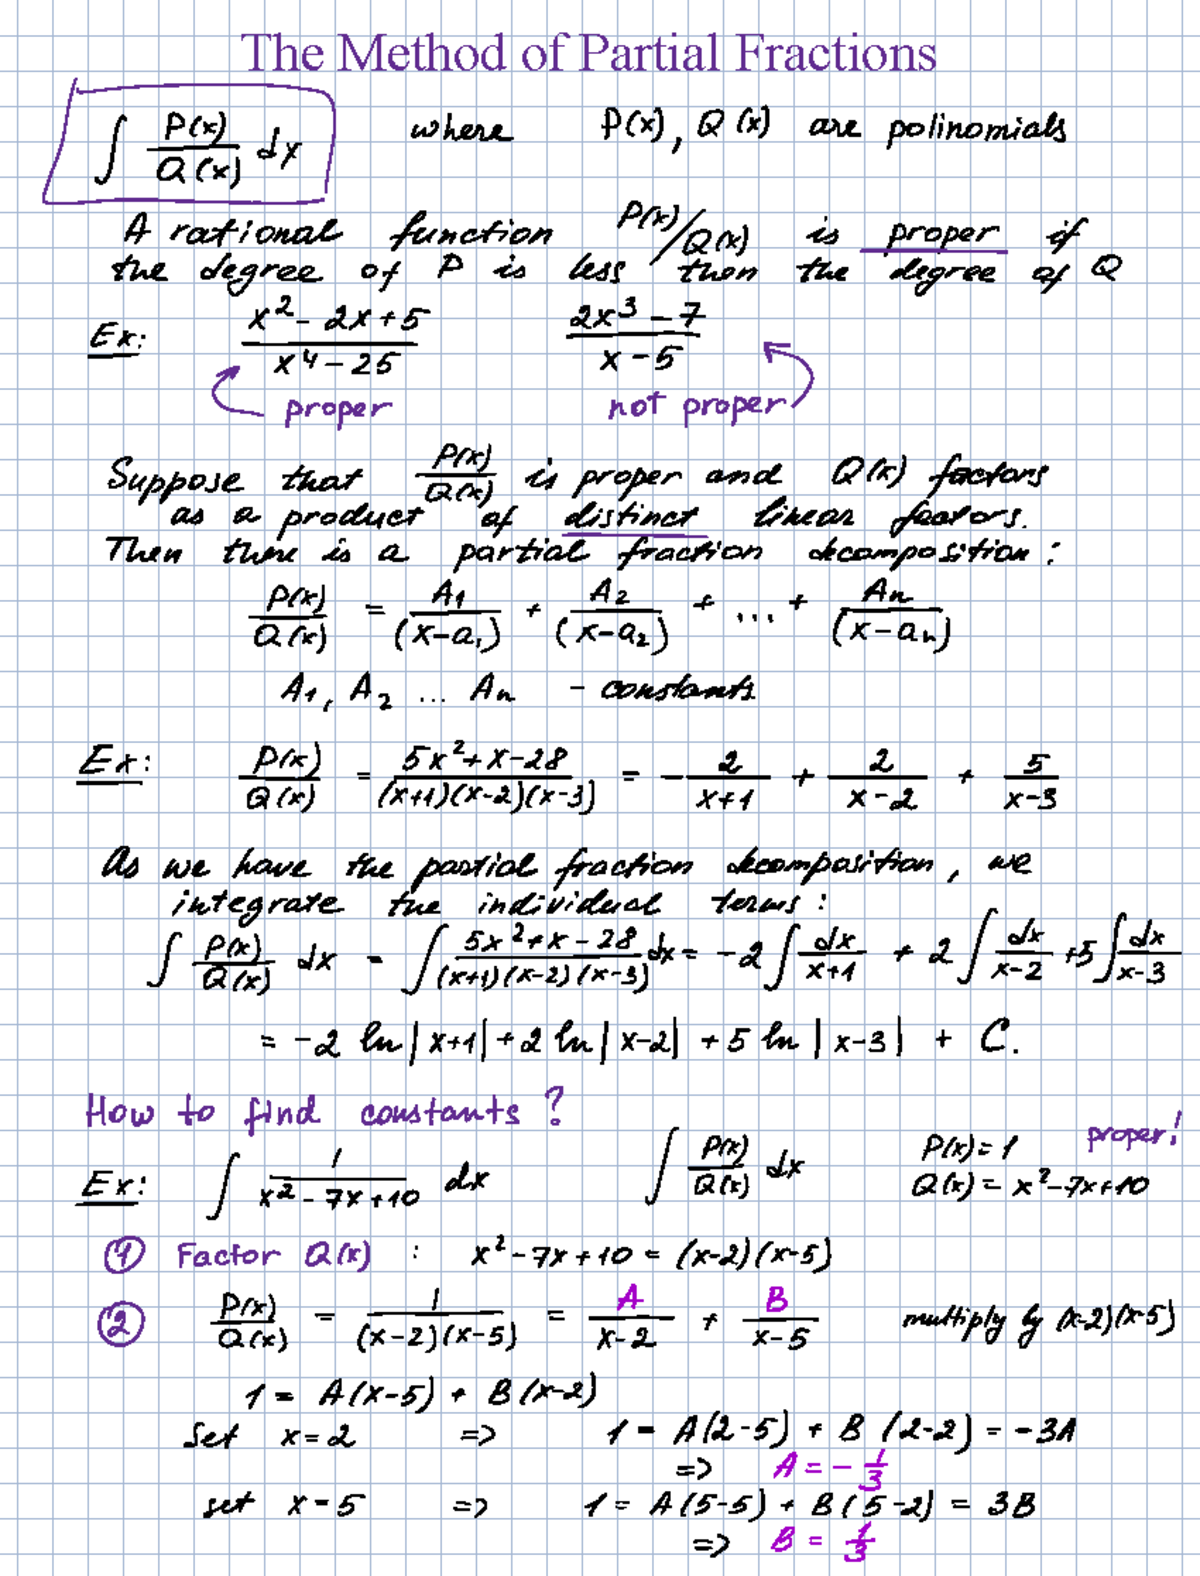 The Method of Partial Fractions
∫ P(x)/Q(x) dx where P(x), Q(x) are polinomials
A rational function P(x)/Q(x) is proper if
the degree of P is less then the degree of Q
Ex: (x² - 2x + 5)/(x⁴ - 25) (2x³ - 7)/(x - 5)
proper not proper
Suppose that P(x)/Q(x) is proper and Q(x) factors
as a product of distinct linear factors.
Then there is a partial fraction decomposition:
P(x)/Q(x) = A₁/(x-a₁) + A₂/(x-a₂) + ... + Aₙ/(x-aₙ)
A₁, A₂ ... Aₙ - constants
Ex: P(x)/Q(x) = (5x²+x-28)/((x+1)(x-2)(x-3)) = - 2/(x+1) + 2/(x-2) + 5/(x-3)
As we have the partial fraction decomposition, we
integrate the individual terms:
∫ P(x)/Q(x) dx = ∫ (5x²+x-28)/((x+1)(x-2)(x-3)) dx = -2 ∫ dx/(x+1) + 2 ∫ dx/(x-2) + 5 ∫ dx/(x-3)
= -2 ln|x+1| + 2 ln|x-2| + 5 ln|x-3| + C.
How to find constants?
Ex: ∫ 1/(x²-7x+10) dx ∫ P(x)/Q(x) dx P(x)=1 proper!
Q(x) = x²-7x+10
① Factor Q(x) : x²-7x+10 = (x-2)(x-5)
② P(x)/Q(x) = 1/((x-2)(x-5)) = A/(x-2) + B/(x-5) multiply by (x-2)(x-5)
1 = A(x-5) + B(x-2)
Set x=2 => 1 = A(2-5) + B(2-2) = -3A
=> A = -1/3
set x=5 => 1 = A(5-5) + B(5-2) = 3B
=> B = 1/3